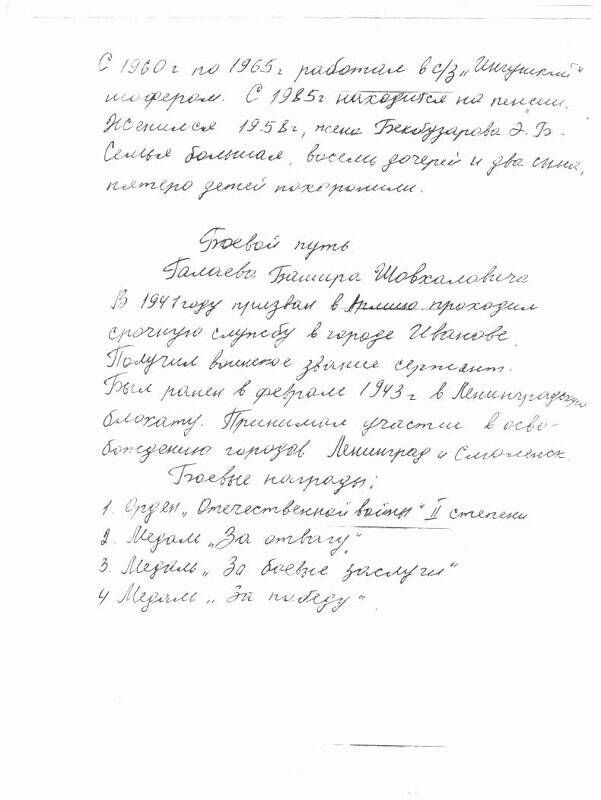 С 1960 г по 1965 г работал в с/з „Ингушкий"
шофером. С 1985г находится на пенсии.
Женился 1958г, жена Бекбузарова Э. Б.
Семья большая, восемь дочерей и два сына,
пятеро детей похоронили.
Боевой путь
Галаева Башира Шовхаловича
В 1941 году призван в Армию проходил
срочную службу в городе Иванове.
Получил воинское звание сержант.
Был ранен в феврале 1943 г в Ленинградскую
блокату. Принимал участие в осво-
бождению городов Ленинград и Смоленск.
Боевые награды:
1. Орден „Отечественной войны" II степени
2. Медаль „За отвагу"
3. Медаль „За боевые заслуги"
4 Медаль „За победу"